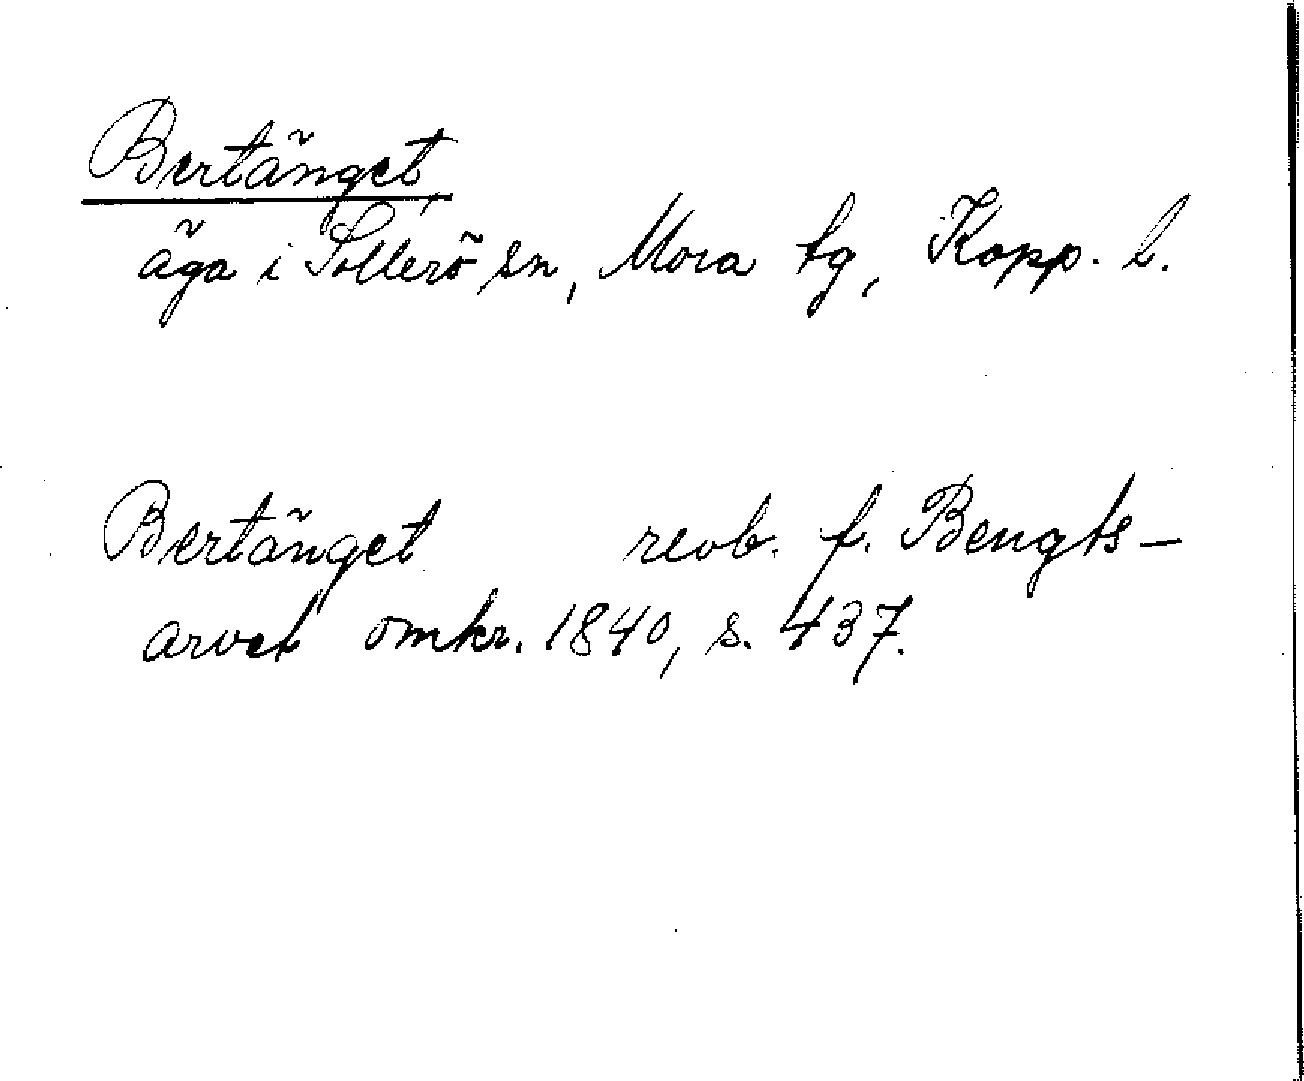 Bertänget,
äga i Sollerö sn, Mora tg, Kopp. l.
Bertänget revb. f. Bengts-
arvet omkr. 1840, s. 437.